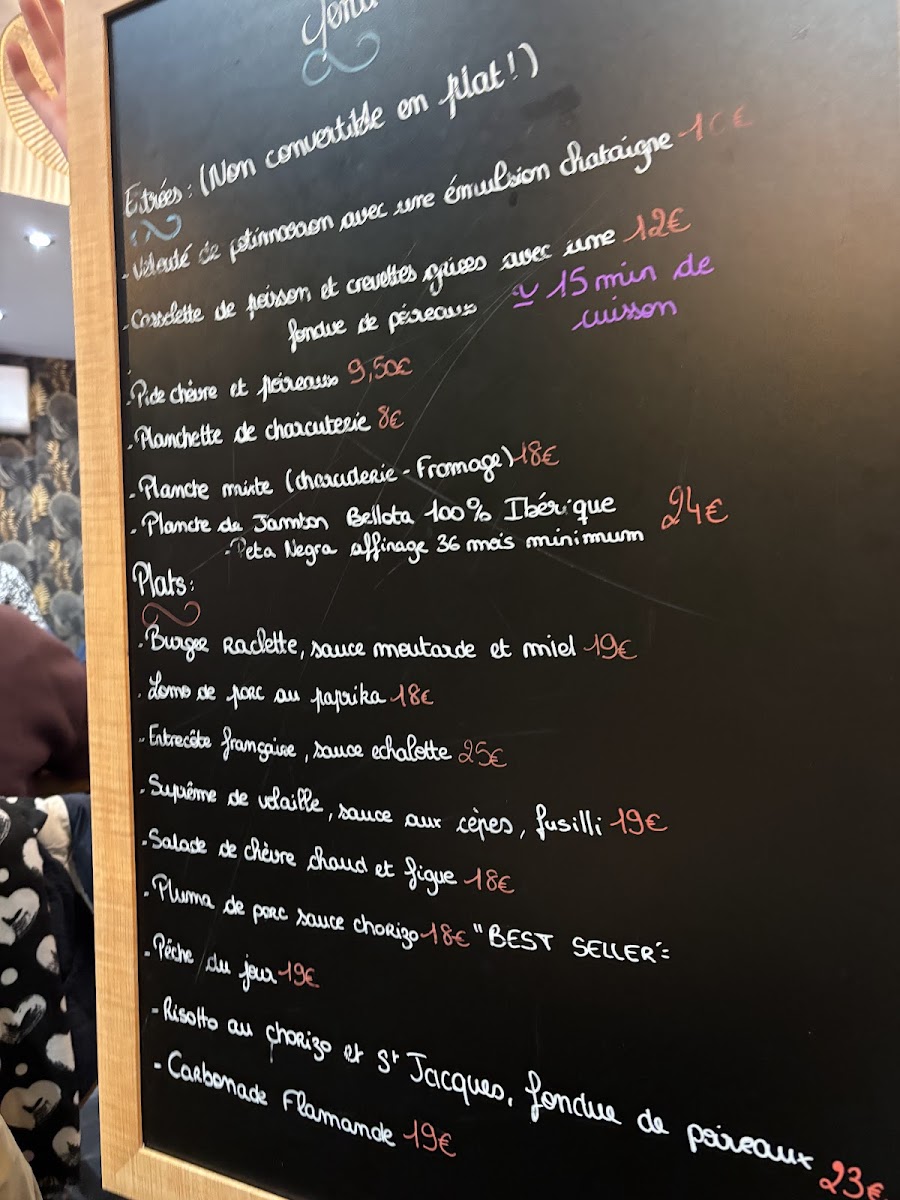 Entrées : (Non convertible en plat !)
- Velouté de potimarron avec une émulsion chataigne 10€
- Cassolette de poisson et crevettes grises avec une 12€
fondue de poireaux ~ 15 min de
cuisson
- Pide chèvre et poireaux 9,50€
- Planchette de charcuterie 8€
- Planche mixte (charcuterie - Fromage) 18€
- Planche de Jambon Bellota 100% Ibérique 24€
- Peta Negra affinage 36 mois minimum
Plats :
- Burger Raclette, sauce moutarde et miel 19€
- Lomo de porc au paprika 18€
- Entrecôte française, sauce echalotte 25€
- Suprême de volaille, sauce aux cèpes, fusilli 19€
- Salade de chèvre chaud et figue 18€
- Pluma de porc sauce chorizo 18€ "BEST SELLER"
- Pêche du jour 19€
- Risotto au chorizo et St Jacques, fondue de poireaux 23€
- Carbonade Flamande 19€